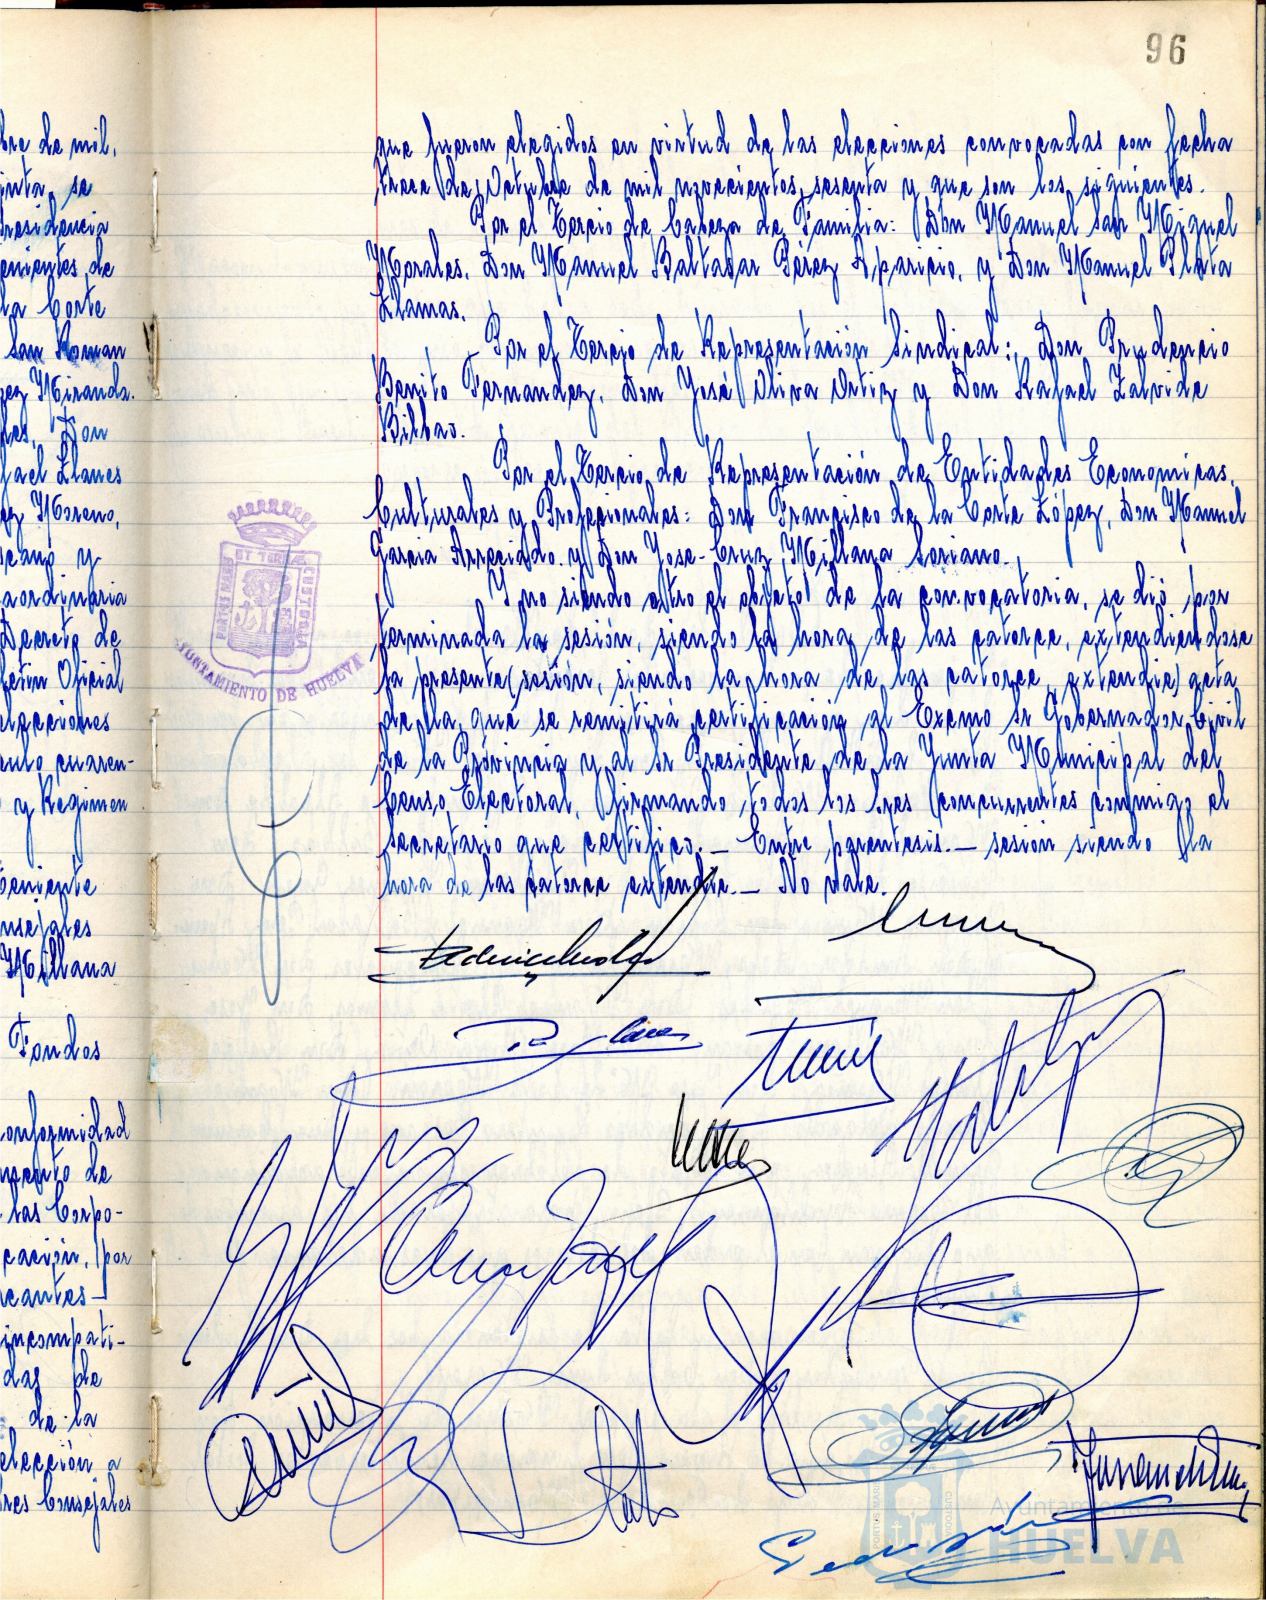 96
bre de mil.
inta, se
residencia
enientes de
la Corte
San Roman
ez Miranda.
les, Don
fael Llanes
ez Moreno,
cano y
aordinaria
Decreto de
letin Oficial
elecciones
culo cuaren-
y Regimen
eniente
ncejales
Millana
Fondos
onformidad
mento de
las Corpo-
cación, por
cantes
incompati-
das de
de la
elección a
res Concejales
que fueron elegidos en virtud de las elecciones convocadas con fecha
trece de Octubre de mil novecientos sesenta y que son los siguientes.
Por el Tercio de Cabeza de Familia: Don Manuel San Miguel
Morales, Don Manuel Baltasar Pérez Aparicio, y Don Manuel Plata
Llamas.
Por el Tercio de Representación Sindical: Don Prudencio
Benito Fernandez, Don José Oliva Ortiz y Don Rafael Zalvide
Bilbao.
Por el Tercio de Representación de Entidades Economicas,
Culturales y Profesionales: Don Francisco de la Corte López, Don Manuel
Garcia Arreciado y Don Jose-Cruz Millana Soriano.
Y no siendo otro el objeto de la convocatoria, se dió por
terminada la sesión, siendo la hora de las catorce, extendiendose
la presente (sesión, siendo la hora de las catorce, extendie) acta
de la que se remitirá certificación al Excmo Sr Gobernador Civil
de la Provincia y al Sr Presidente de la Junta Municipal del
Censo Electoral, firmando todos los Sres concurrentes conmigo el
secretario que certifico.— Entre parentesis.— sesión siendo la
hora de las catorce extendie.— No vale.
PORTUS MARIS ET TERRAE CUSTODIA
AYUNTAMIENTO DE HUELVA
Ayuntamiento de
HUELVA